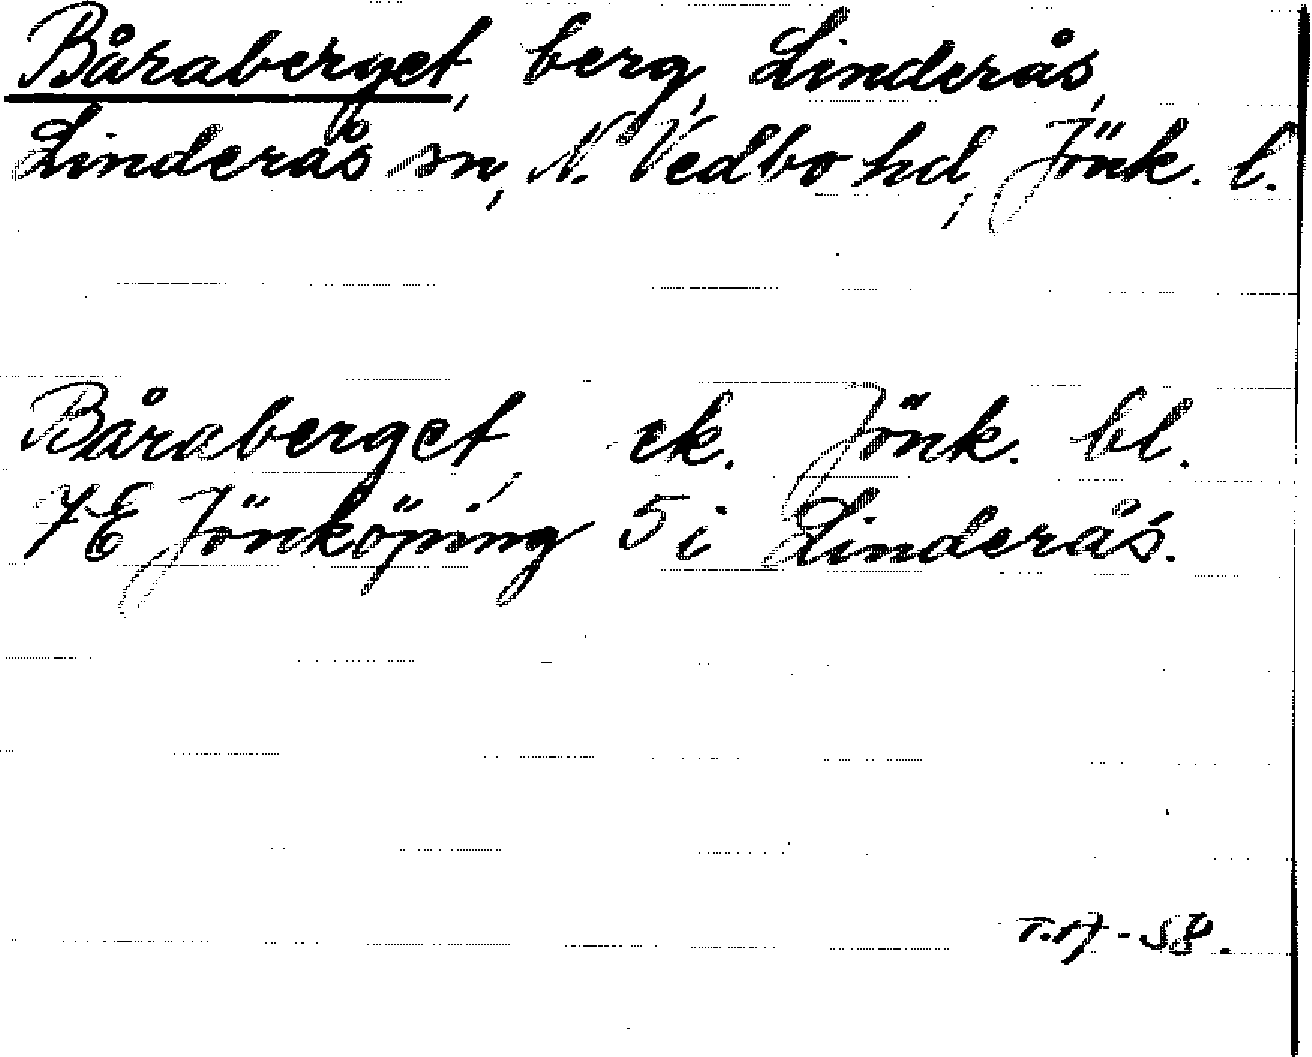 Båraberget, berg, Linderås,
Linderås sn, N. Vedbo hd, Jönk. l.
Båraberget, ek. Jönk. bl.
7E Jönköping 5 i Linderås.
T.A-58.